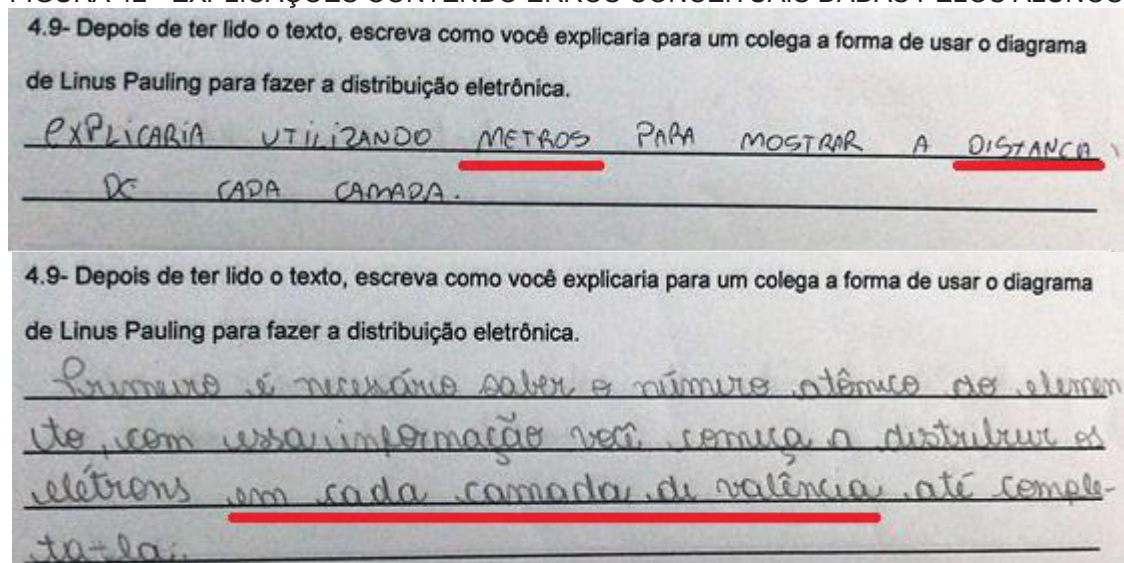 FIGURA 42 - EXPLICAÇÕES CONTENDO ERROS CONCEITUAIS DADAS PELOS ALUNOS
4.9- Depois de ter lido o texto, escreva como você explicaria para um colega a forma de usar o diagrama
de Linus Pauling para fazer a distribuição eletrônica.
EXPLICARIA UTILIZANDO METROS PARA MOSTRAR A DISTANCA
DE CADA CAMADA.
4.9- Depois de ter lido o texto, escreva como você explicaria para um colega a forma de usar o diagrama
de Linus Pauling para fazer a distribuição eletrônica.
Primeiro é necessário saber o número atômico do elemen
to, com essa informação você começa a distribuir os
elétrons em cada camada de valência até comple-
ta-la.